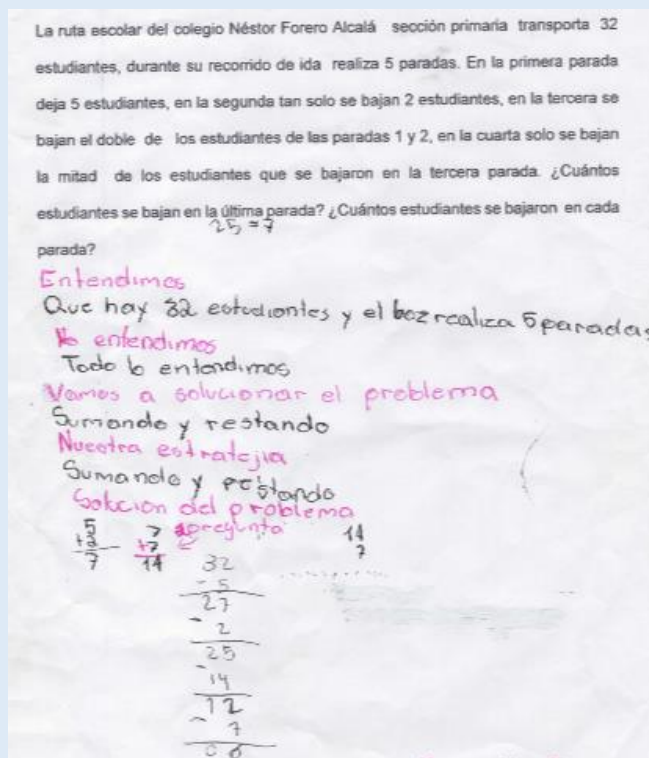 La ruta escolar del colegio Néstor Forero Alcalá sección primaria transporta 32
estudiantes, durante su recorrido de ida realiza 5 paradas. En la primera parada
deja 5 estudiantes, en la segunda tan solo se bajan 2 estudiantes, en la tercera se
bajan el doble de los estudiantes de las paradas 1 y 2, en la cuarta solo se bajan
la mitad de los estudiantes que se bajaron en la tercera parada. ¿Cuántos
estudiantes se bajan en la última parada? ¿Cuántos estudiantes se bajaron en cada
25 = 7
parada?
Entendimos
Que hay 32 estudiantes y el boz realiza 5 paradas
No entendimos
Todo lo entendimos
Vamos a solucionar el problema
Sumando y restando
Nuestra estratejia
Sumando y restando
Solución del problema
5
+2
7
7
+7
14
14
7
32
- 5
27
- 2
25
- 14
12
- 7